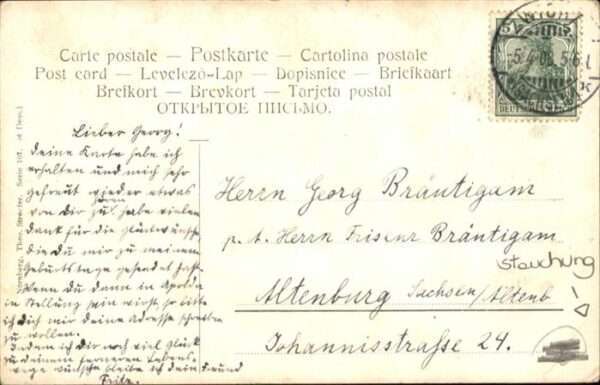 Carte postale — Postkarte — Cartolina postale
Post card — Levelezö-Lap — Dopisnice — Briefkaart
Brefkort — Brevkort — Tarjeta postal
ОТКРЫТОЕ ПИСЬМО.
Lieber Georg!
Deine Karte habe ich
erhalten und mich sehr
gefreut wieder etwas
von dir zu hören habe vielen
Dank für die Glückwünsche
die du mir zu meinem
Geburtstage gesendet hast.
Wenn du dann in Apolda
in Stellung sein wirst, so bitte
ich dich mir deine Adresse schreiben
zu wollen.
Indem ich dir viel Glück
zu deinem ferneren Lebens
wege wünsche bleibe ich dein Freund
Fritz.
Herrn Georg Bräutigam
p. A. Herrn Friseur Bräutigam
Altenburg Sachsen/Altenb
Johannisstraße 24.
stauchung
Theo. Stroefer. Serie 107.